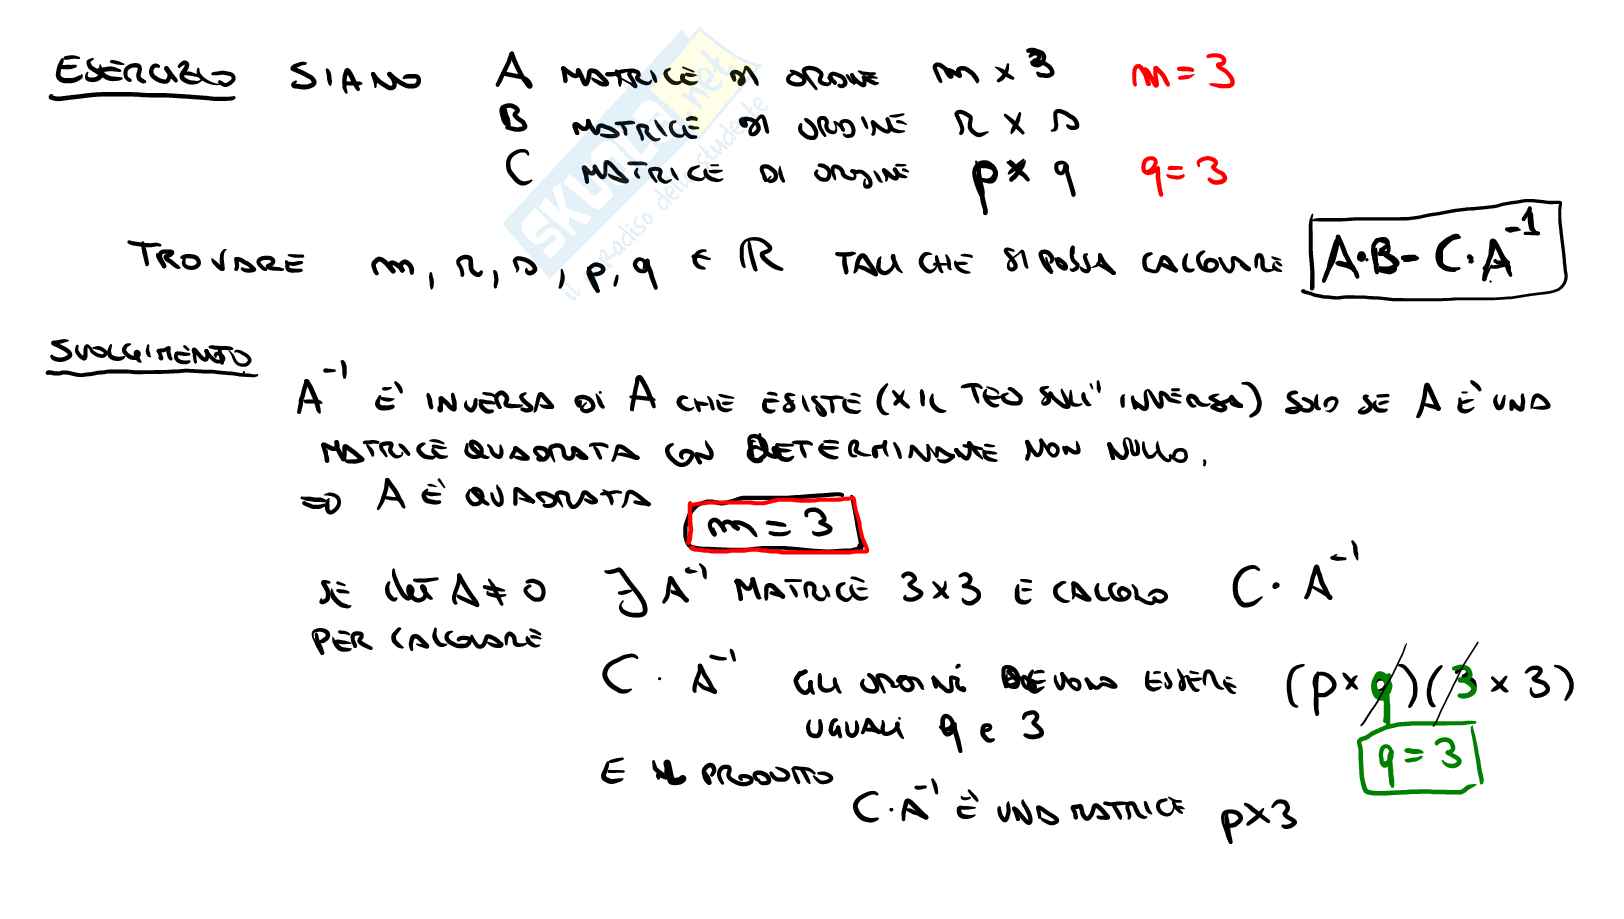 ESERCIZIO SIANO A MATRICE DI ORDINE m x 3 m = 3
B MATRICE DI ORDINE r x s
C MATRICE DI ORDINE p x q q = 3
TROVARE m, r, s, p, q ∈ ℝ TALI CHE SI POSSA CALCOLARE A·B - C·A⁻¹
SVOLGIMENTO
A⁻¹ È INVERSA DI A CHE ESISTE (x IL TEO SULL'INVERSA) SOLO SE A È UNA
MATRICE QUADRATA CON DETERMINANTE NON NULLO.
⇒ A È QUADRATA m = 3
SE det A ≠ 0 ∃ A⁻¹ MATRICE 3x3 E CALCOLO C · A⁻¹
PER CALCOLARE
C · A⁻¹ GLI ORDINI DEVONO ESSERE (p x q)(3 x 3)
UGUALI q e 3 q = 3
E IL PRODOTTO
C·A⁻¹ È UNA MATRICE p x 3
SKUOLA.net
il paradiso dello studente